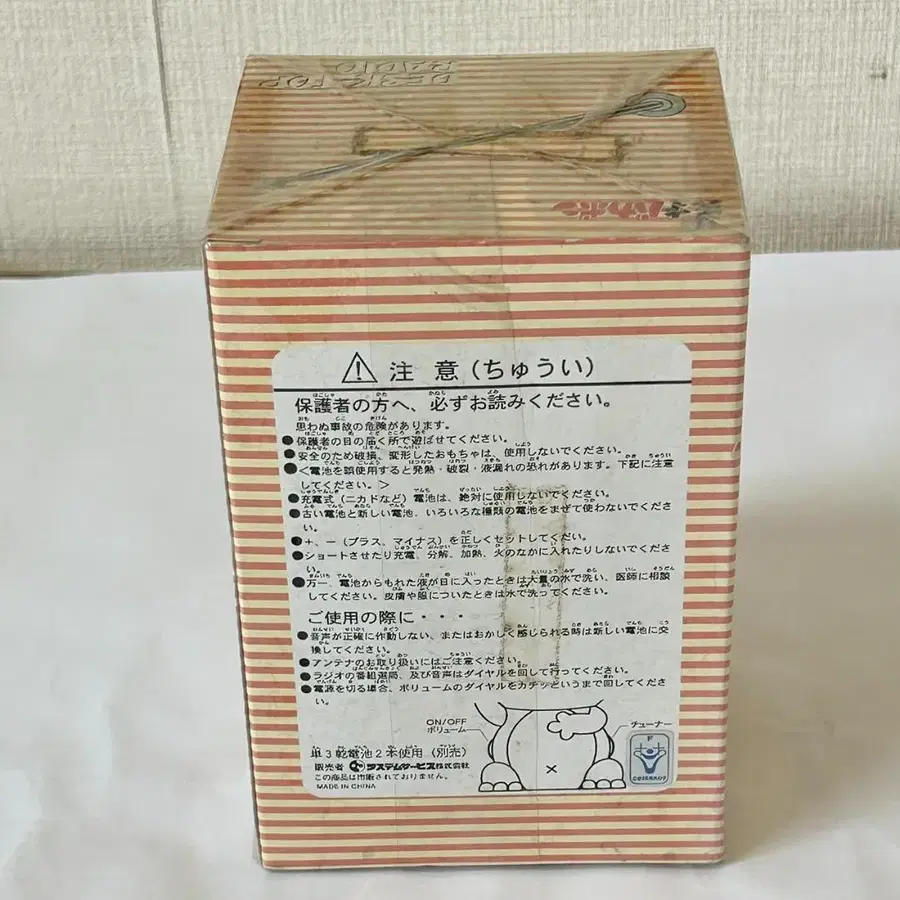 DESK TOP
RADIO
注 意（ちゅうい）
保護者の方へ、必ずお読みください。
思わぬ事故の危険があります。
●保護者の目の届く所で遊ばせてください。
●安全のため破損、変形したおもちゃは、使用しないでください。
●＜電池を誤使用すると発熱・破裂・液漏れの恐れがあります。下記に注意
してください。＞
●充電式（ニカドなど）電池は、絶対に使用しないでください。
●古い電池と新しい電池、いろいろな種類の電池をまぜて使わないでくださ
い。
●＋、－（プラス、マイナス）を正しくセットしてくだい。
●ショートさせたり充電、分解、加熱、火のなかに入れたりしないでくださ
い。
●万一、電池からもれた液が目に入ったときは大量の水で洗い、医師に相談
してください。皮膚や服についたときは水で洗ってください。
ご使用の際に・・・
●音声が正確に作動しない、またはおかしく感じられる時は新しい電池に交
換してください。
●アンテナのお取り扱いにはご注意ください。
●ラジオの番組選局、及び音声はダイヤルを回して行ってください。
●電源を切る場合、ボリュームのダイヤルをカチッというまで回してくださ
い。
ON/OFF
ボリューム
チューナー
単3乾電池2本使用（別売）
販売者 システムサービス株式会社
この商品は市販されておりません。
MADE IN CHINA